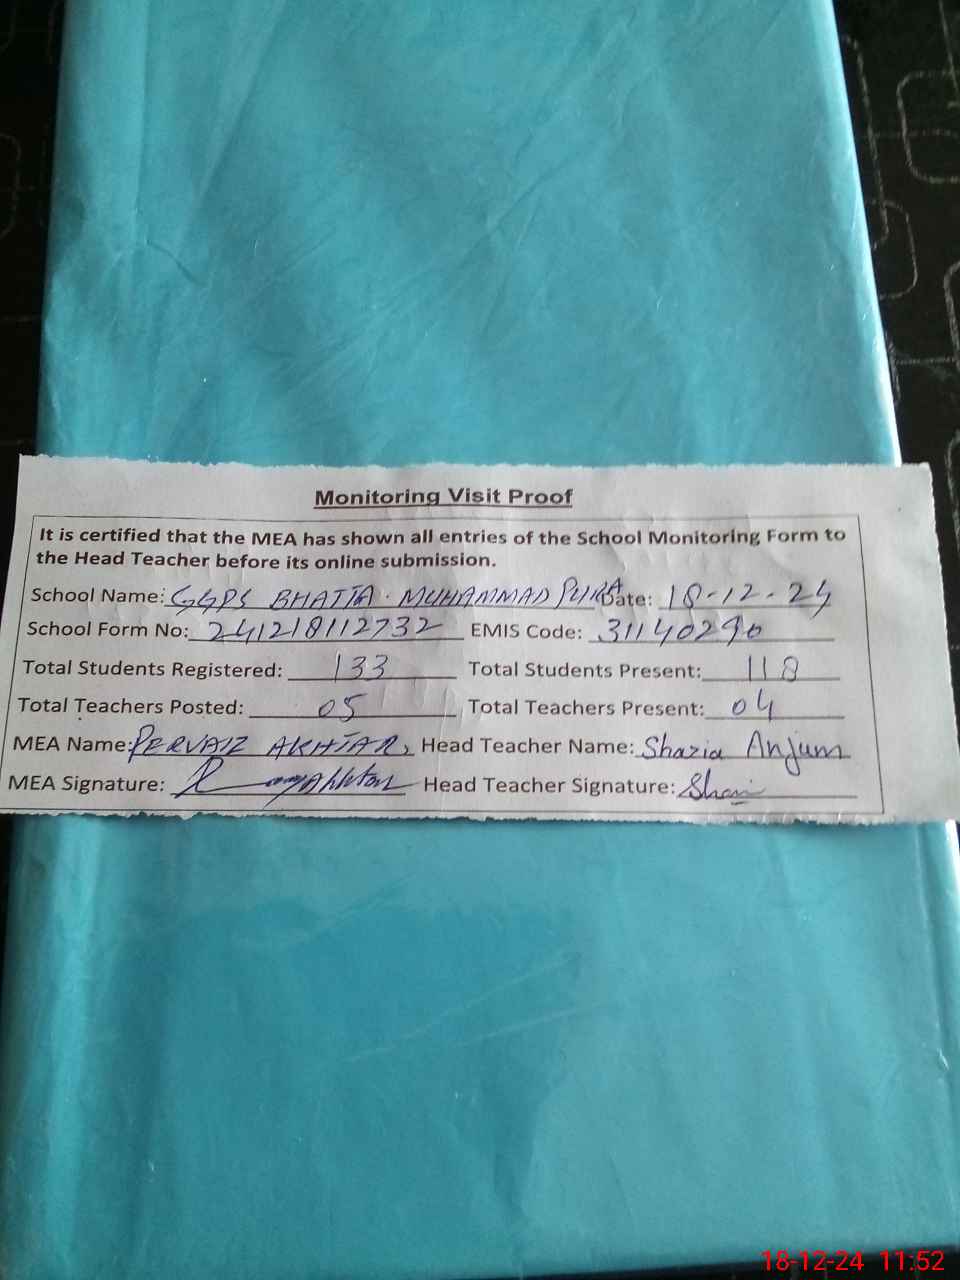 Monitoring Visit Proof
It is certified that the MEA has shown all entries of the School Monitoring Form to
the Head Teacher before its online submission.
School Name: GGPS BHATTA MUHAMMAD PURA Date: 18-12-24
School Form No: 241218112732 EMIS Code: 31140290
Total Students Registered: 133 Total Students Present: 118
Total Teachers Posted: 05 Total Teachers Present: 04
MEA Name: PERVAIZ AKHTAR, Head Teacher Name: Shazia Anjum
MEA Signature: Head Teacher Signature:
18-12-24 11:52